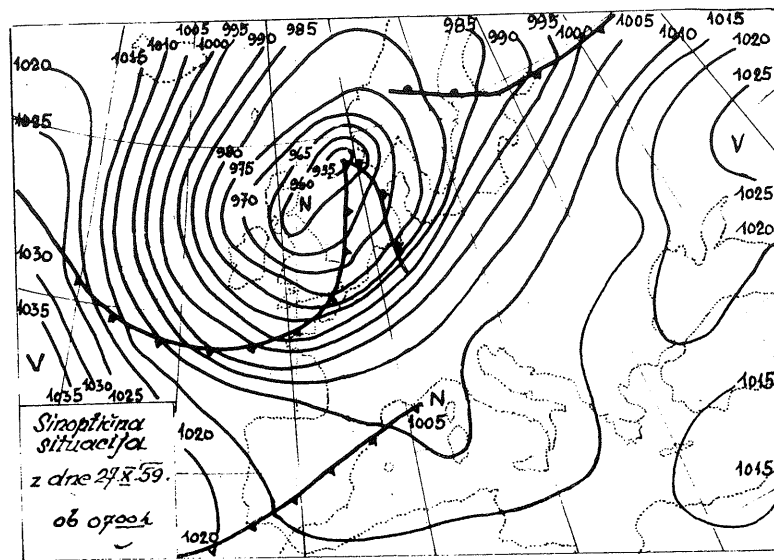 1015 1010 1005 1000 995 990 985
985 990 995 1000 1005 1010 1015
1020
1020
1025
1025
980 965
975 935
960
970 N
V
1025
1020
1030
1035
V
1035 1030 1025
1015
N
1005
1020
1015
1020
Sinoptična
situacija
z dne 27.X.59.
ob 0700h